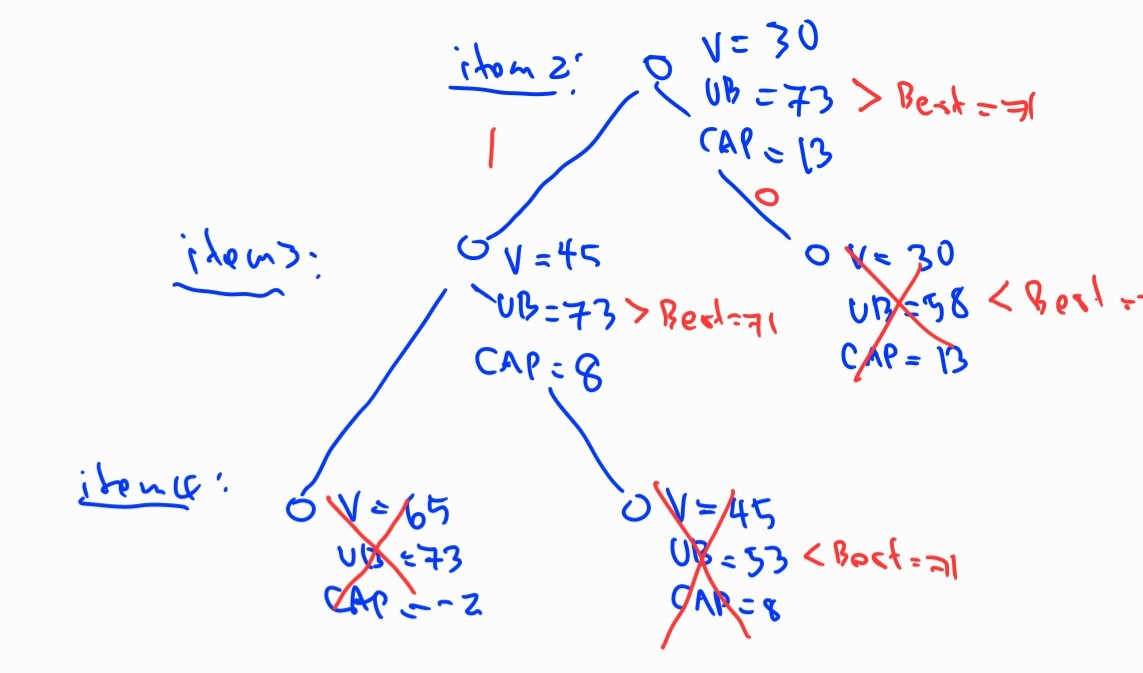 item 2:
V = 30
UB = 73 > Best = 71
CAP = 13
1
0
item 3:
V = 45
UB = 73 > Best = 71
CAP = 8
V = 30
UB = 58 < Best =
CAP = 13
item 4:
V = 65
UB = 73
CAP = -2
V = 45
UB = 53 < Best = 71
CAP = 8